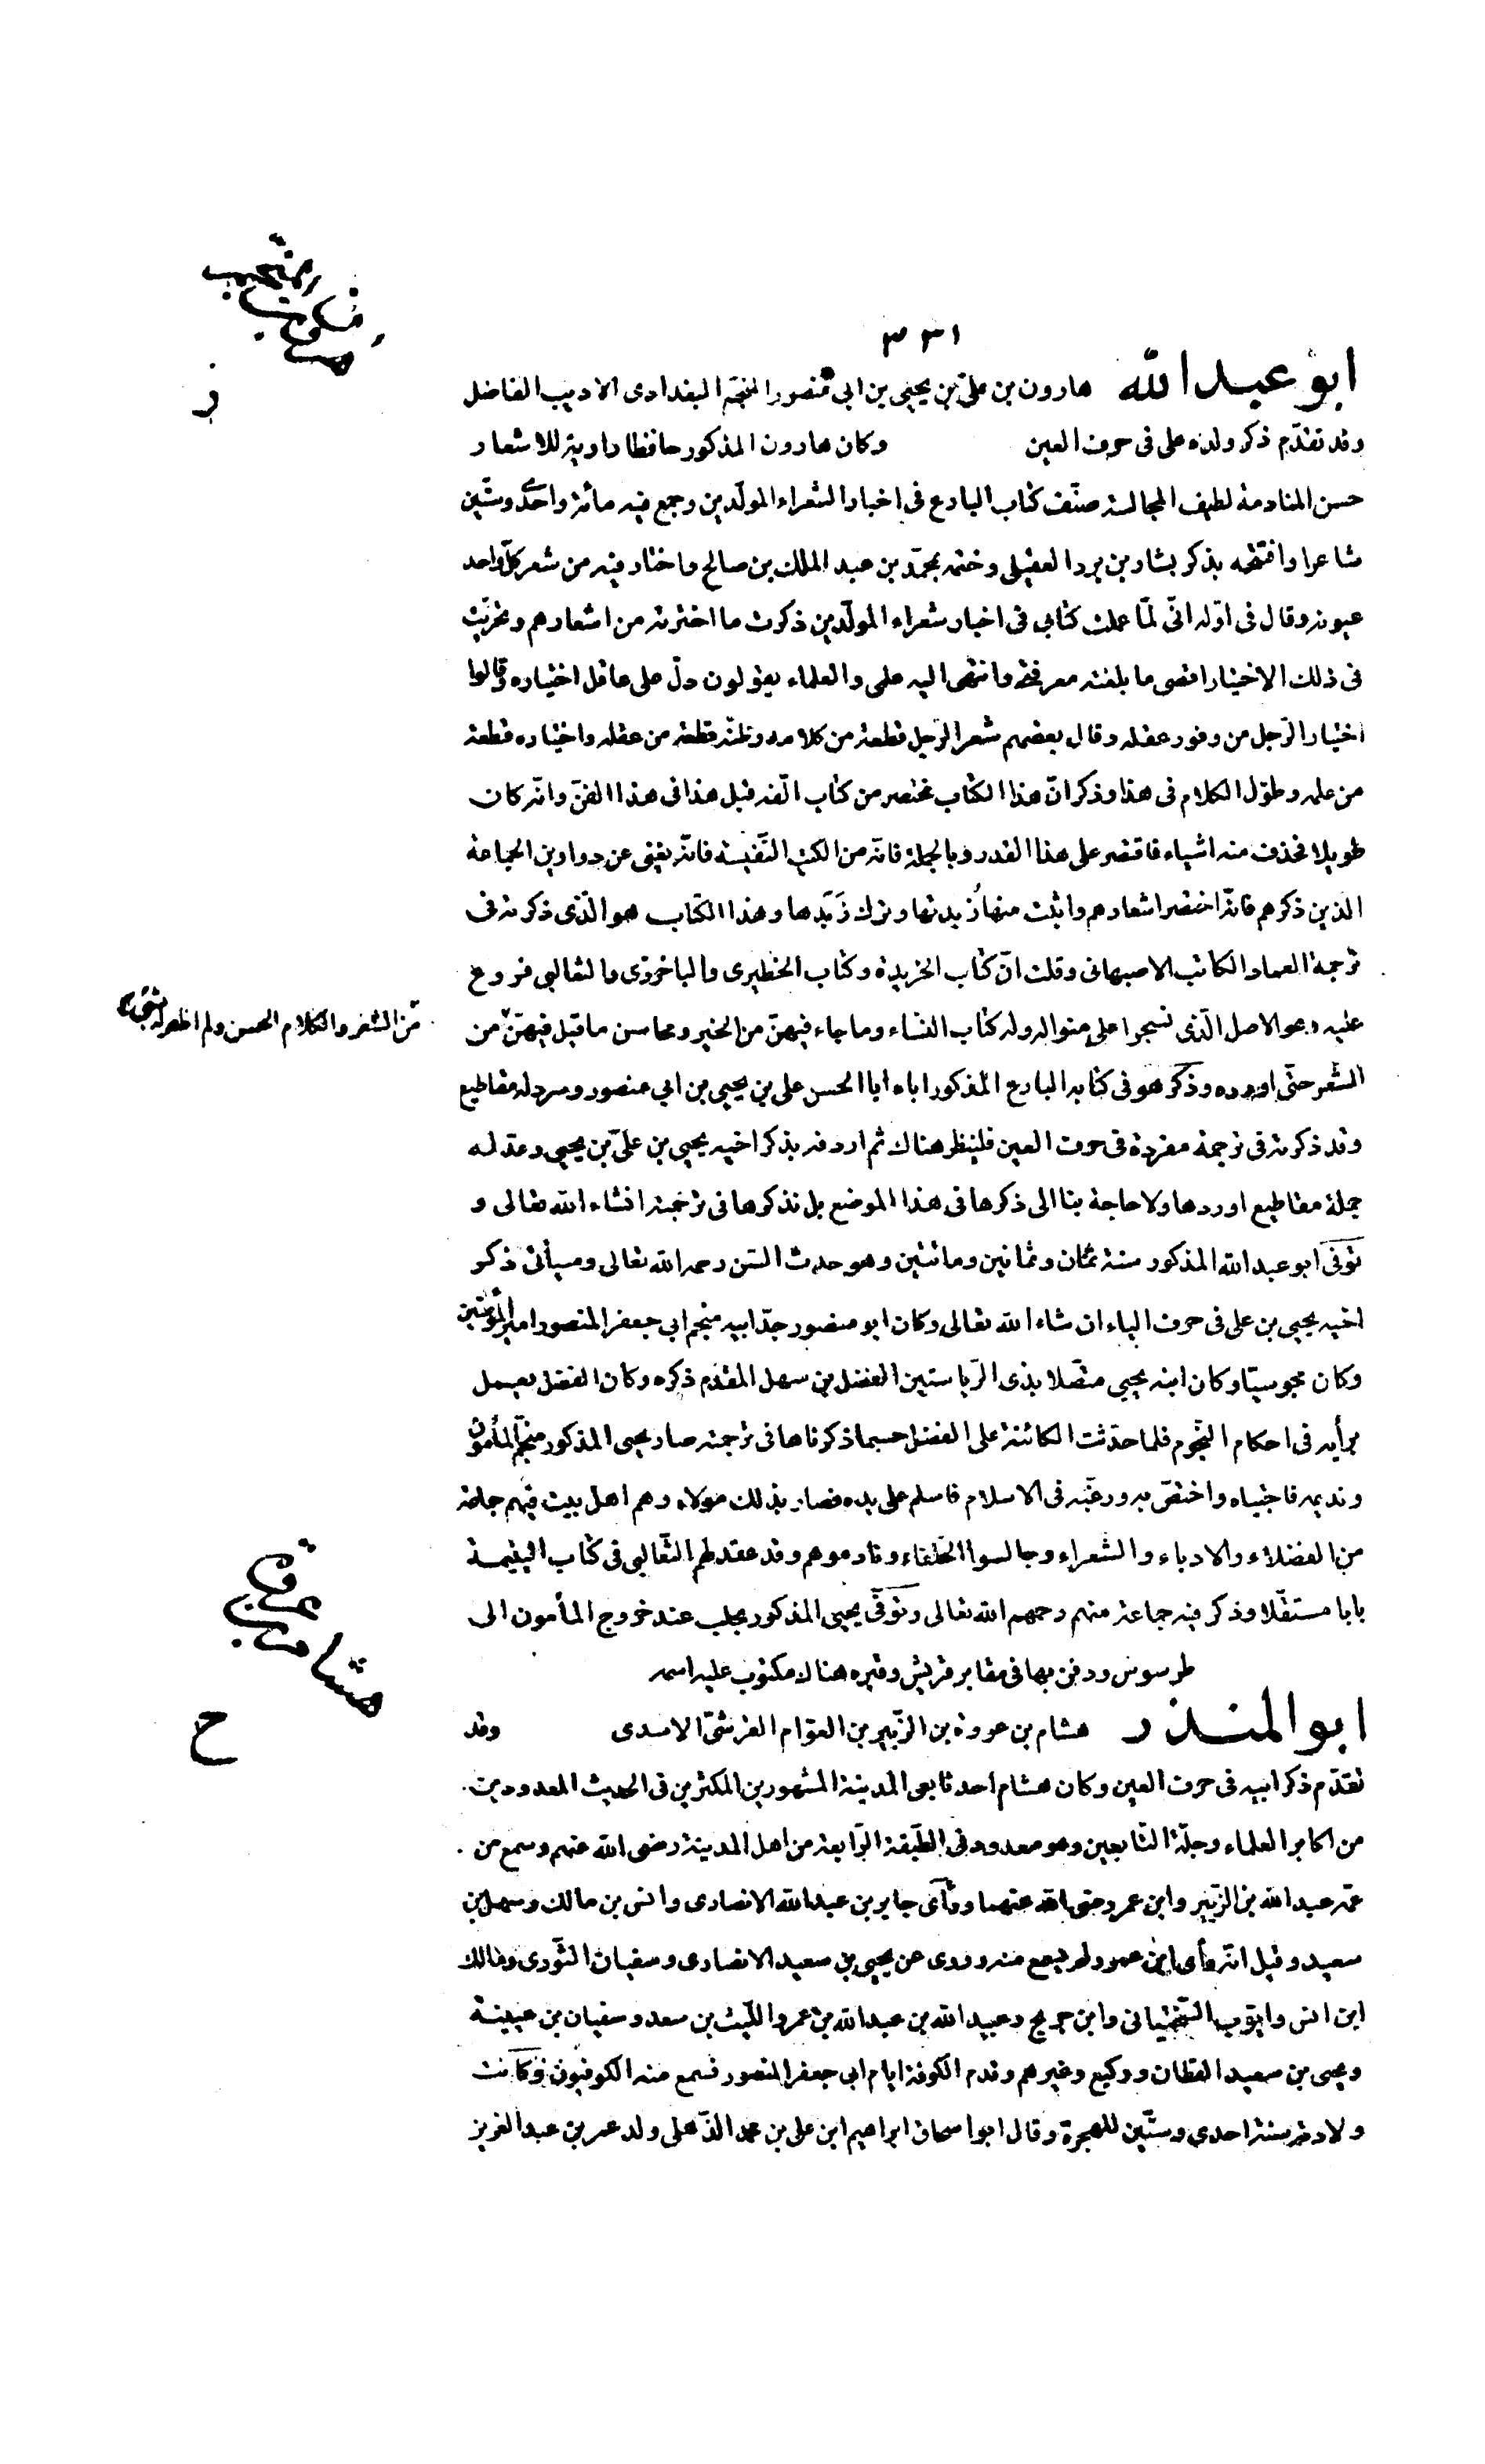 ٣٣١
ابو عبد الله هارون بن علىّ بن يحيى بن ابى منصور المنجّم البغدادى الاديب الفاضل
وقد تقدّم ذكر ولده على فى حرف العين وكان هارون المذكور حافظا راوية للاشعار
حسن المنادمة لطيف المجالسة صنّف كتاب البارع فى اخبار الشعراء المولّدين وجمع فيه مائة واحدى وستّين
شاعرا وافتتحه بذكر بشار بن برد العقيلى وختمه بمحمّد بن عبد الملك بن صالح واختار فيه من شعر كلّ واحد
عيونه وقال فى اوّله انّى لمّا عملت كتابى فى اخبار شعراء المولّدين ذكرت ما اخترته من اشعارهم وتحرّيت
فى ذلك الاختيار اقصى ما بلغته معرفتى وانتهى اليه علمى والعلماء يقولون دلّ على عاقل اختياره وقالوا
اختيار الرّجل من وفور عقله وقال بعضهم شعر الرّجل قطعة من كلامه وظنّه قطعة من عقله واختياره قطعة
من علمه وطوّل الكلام فى هذا وذكر انّ هذا الكتاب مختصر من كتاب الّفه قبل هذا فى هذا الفنّ وانّه كان
طويلا فحذف منه اشياء فاقتصر على هذا القدر وبالجملة فانّه من الكتب النّفيسة فانّه يغنى عن دواوين الجماعة
الذين ذكرهم فانّه اختصر اشعارهم واثبت منها زُبدتها وترك زَبَدها وهذا الكتاب هو الّذى ذكرته فى
ترجمة العماد الكاتب الاصبهانى وقلت انّ كتاب الخريدة وكتاب الخطيرى والباخرزى والثعالبى فروع
عليه وهو الاصل الّذى نسجوا على منواله وله كتاب النساء وما جاء فيهنّ من الخبر ومحاسن ما قيل فيهنّ من
من الشعر والكلام الحسن ولم اظفر له بشئ
الشعر حتّى اورده وذكر هو فى كتابه البارع المذكور اباه ابا الحسن على بن يحيى بن ابى منصور وسرد له مقاطيع
وقد ذكرته فى ترجمة مفردة فى حرف العين فلينظر هناك ثم اردفه بذكر اخيه يحيى بن علىّ بن يحيى وعدّ له
جملة مقاطيع اوردها ولا حاجة بنا الى ذكرها فى هذا الموضع بل نذكرها فى ترجمته انشاء الله تعالى و
توفى ابو عبد الله المذكور سنة ثمان وثمانين ومائتين وهو حدث السّن رحمه الله تعالى وسيأتى ذكر
اخيه يحيى بن على فى حرف الياء ان شاء الله تعالى وكان ابو منصور جدّ ابيه منجم ابى جعفر المنصور امير المؤمنين
وكان مجوسيّا وكان ابنه يحيى متّصلا بذى الرّياستين الفضل بن سهل المقدّم ذكره وكان الفضل يعمل
برأيه فى احكام النّجوم فلما حدثت الكائنة على الفضل حسبما ذكرناها فى ترجمته صار يحيى المذكور منجّم المأمون
ونديمه فاجتباه واختصّ به ورغّبه فى الاسلام فاسلم على يده فصار بذلك مولاه وهم اهل بيت فيهم جماعة
من الفضلاء والادباء والشعراء وجالسوا الخلفاء ونادموهم وقد عقد لهم الثّعالبى فى كتاب اليتيمة
بابا مستقلّا وذكر فيه جماعة منهم رحمهم الله تعالى وتوفّى يحيى المذكور بحلب عند خروج المأمون الى
طرسوس ودفن بها فى مقابر قريش وقبره هناك مكتوب عليه اسمه
ح
ابو المنذر هشام بن عروة بن الزّبير بن العوّام القرشىّ الاسدى وقد
تقدّم ذكر ابيه فى حرف العين وكان هشام احد تابعى المدينة المشهورين المكثرين فى الحديث المعدودين
من اكابر العلماء وجلّة التّابعين وهو معدود فى الطّبقة الرّابعة من اهل المدينة رضى الله عنهم وسمع من
عمّه عبد الله بن الزّبير وابن عمر رضى الله عنهما ورأى جابر بن عبد الله الانصارى وانس بن مالك وسهل بن
سعيد وقيل انّه رأى ابن عمر ولم يسمع منه وروى عن يحيى بن سعيد الانصارى وسفيان الثّورى ومالك
ابن انس وايّوب السّختيانى وابن جريج وعبيد الله بن عبد الله بن عمر واللّيث بن سعد وسفيان بن عيينة
ويحيى بن سعيد القطان ووكيع وغيرهم وقدم الكوفة ايام ابى جعفر المنصور فسمع منه الكوفيون وكانت
ولادته سنة احدى وستّين للهجرة وقال ابو اسحاق ابراهيم ابن على بن محمد الذّهلى ولد عمر بن عبد العزيز